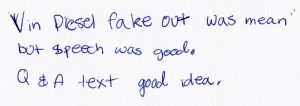 Vin Diesel fake out was mean
but speech was good.
Q & A text good idea.